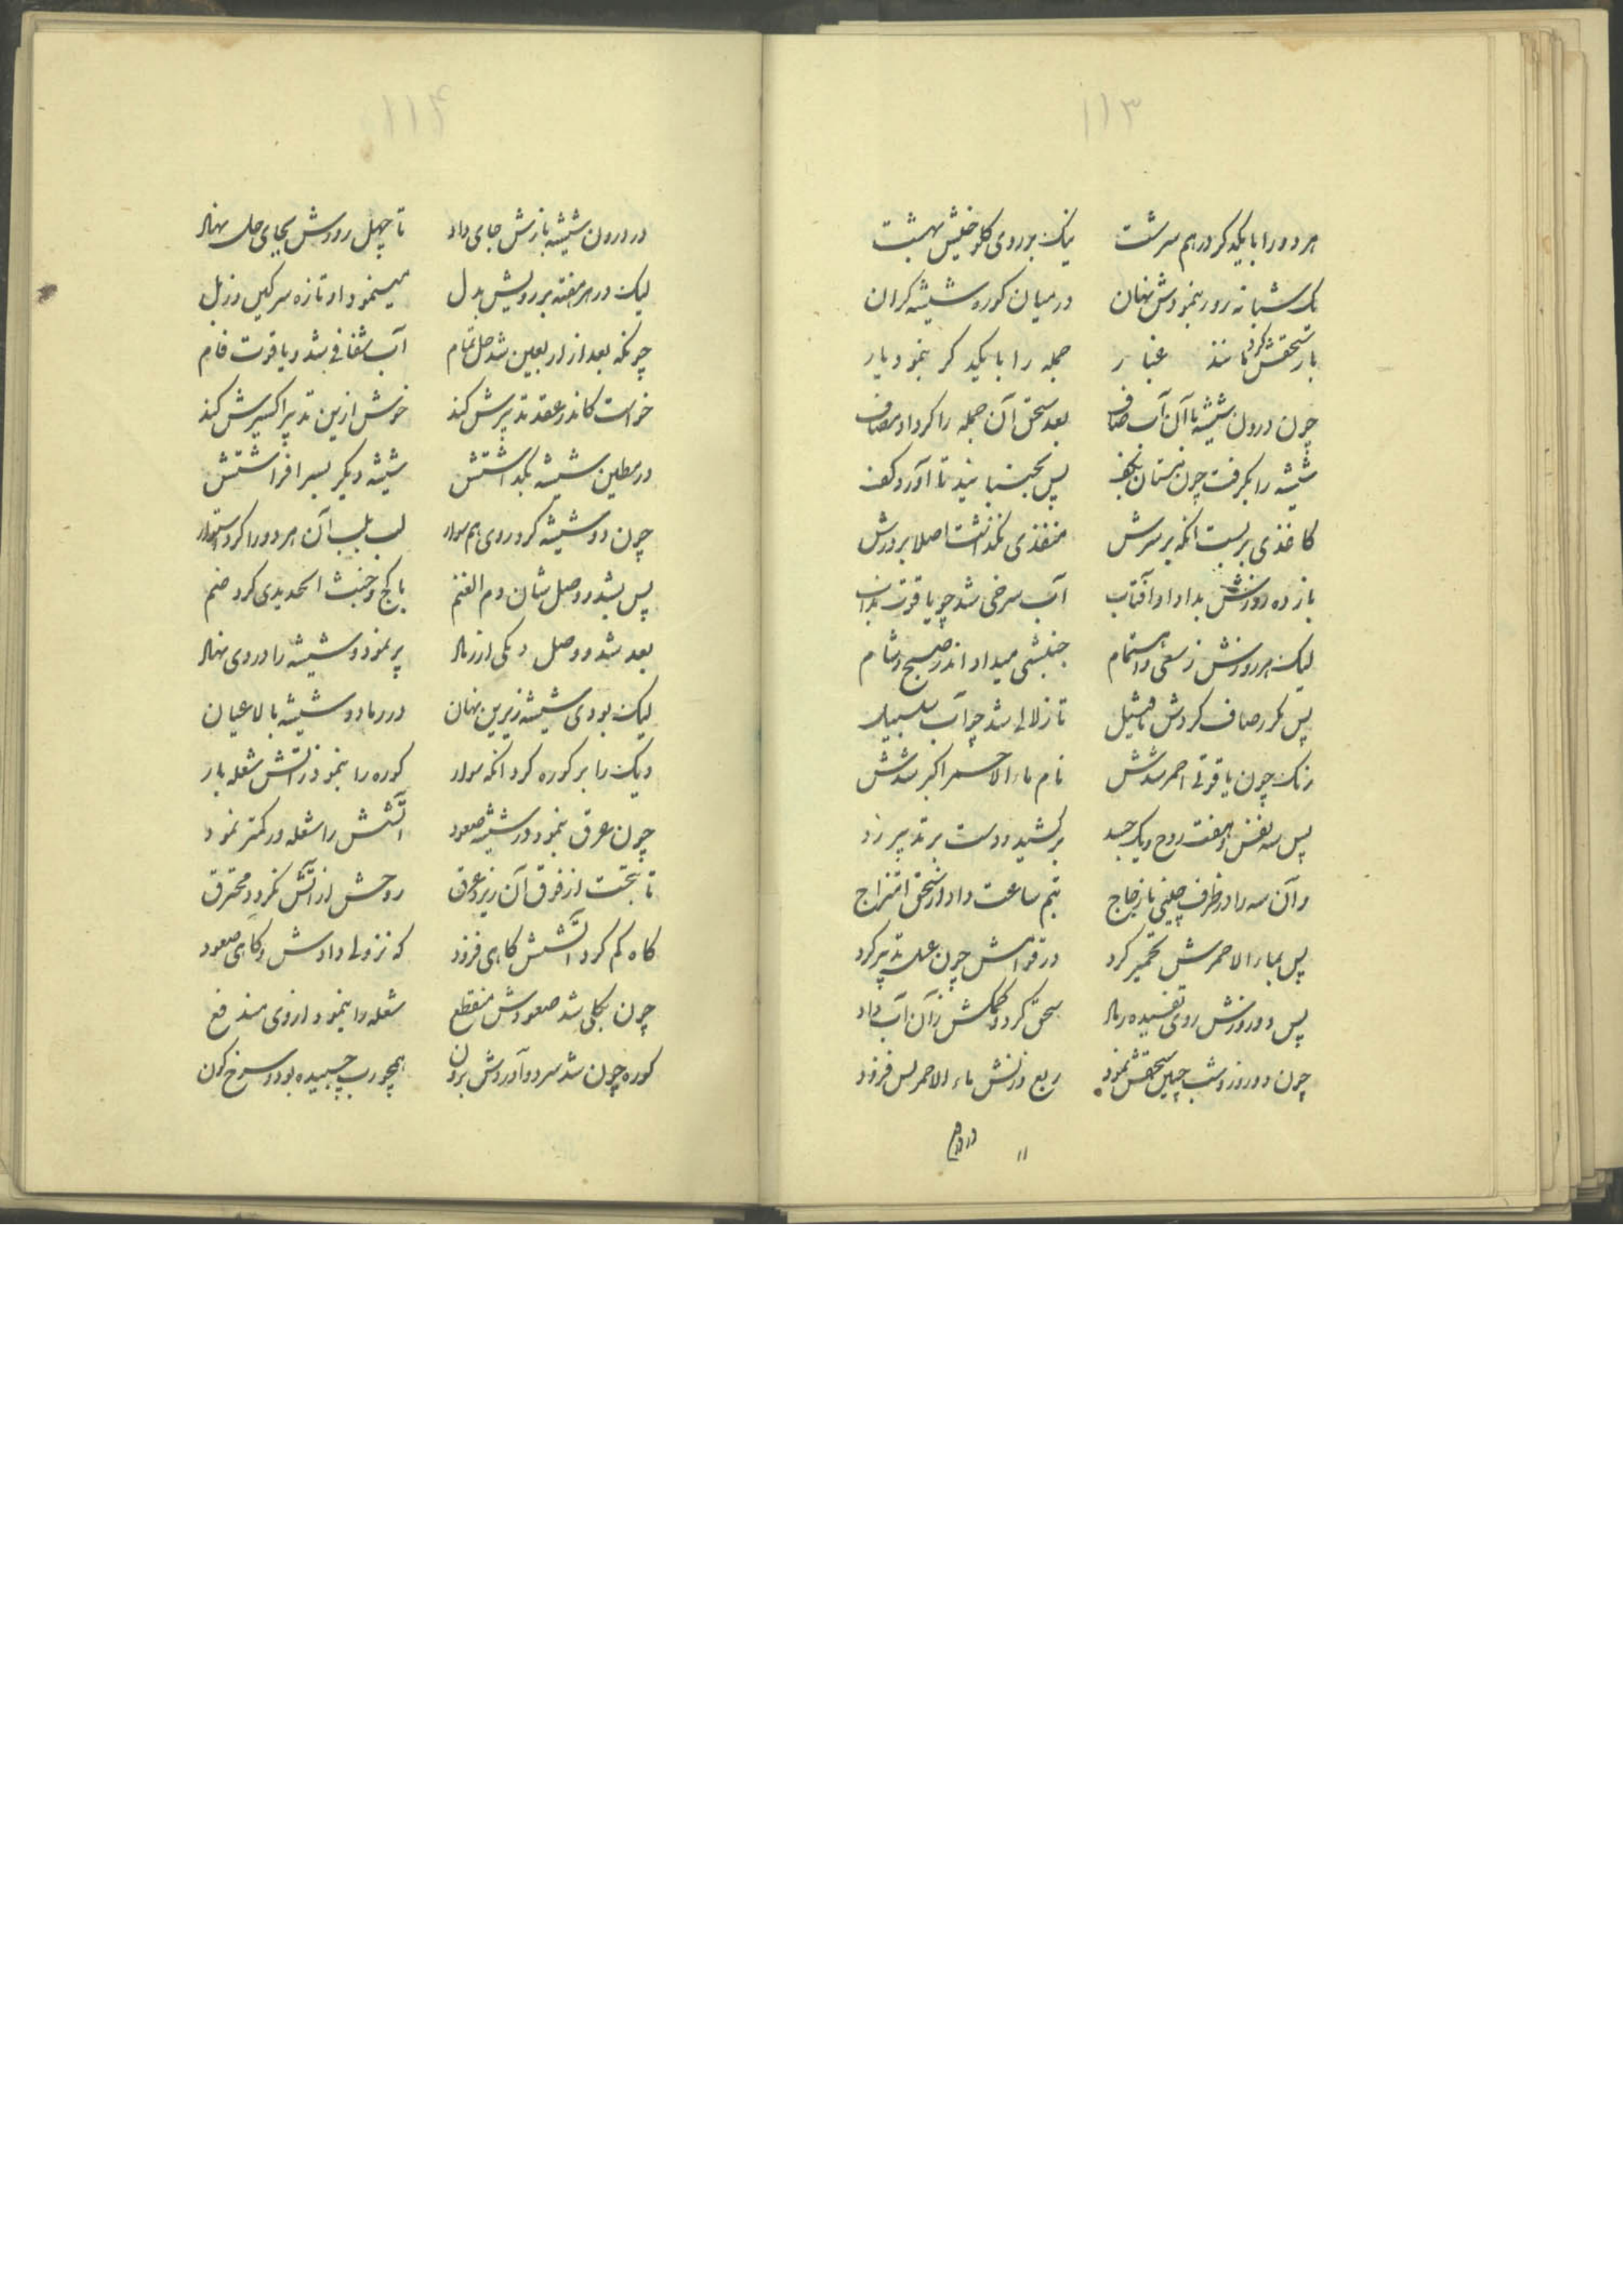 ۱۱۳
هر دو را با یکدیگر در هم سرشت نیک بر روی کلوخیش بهشت
یک شبانه روز بنمودش نهان در میان کوره شیشه گران
باز سحقش کرد مانند غبار جمله را با یکدیگر بنمود یار
چون درون شیشه با آن آب صاف بعد سحق آن جمله را کرد او مضاف
شیشه را بگرفت چون بکف پس بجنبانید تا آورد کف
کاغذی بر بست انکه بر سرش منفذی نگذاشت اصلا بر درش
باز ده روزش بداد او آفتاب آب سرخی شد چو یاقوت
لیک هر روزش ز سعی و اهتمام جنبشی میداد اندر صبح و شام
پس مکرر صاف کردش با فتیل تا زلالی شد چو آب سلسبیل
رنک چون یاقوتی احمر شدش نام ماء الاحمر اکبر شدش
پس سه نفس و هفت روح و یک جسد بر کشید و دست بر تدبیر زد
و آن سه را در ظرف چینی یا زجاج نیم ساعت داد از سحق امتزاج
پس بماء الاحمرش تخمیر کرد در قوامش چون عسل تدبیر کرد
پس دو روزش روی تفسیده رماد سحق کرد و کم کمش زآن آب داد
چون دو روز و شب چنین سحقش نمود ربع وزنش ماء الاحمر پس فزود
۱۱ در درون
۱۱۴
در درون شیشه بازش جای داد تا چهل روزش بجای حل نهاد
لیک در هر هفته بر رویش بدل مینمود او تازه سرکین و زبل
چونکه بعد از اربعین شد حل تمام آب شفافی شد و یاقوت فام
خواست کاندر عقد تدبیرش کند خوش ازین تدبیر اکسیرش کند
در مطین شیشه بگذاشتش شیشه دیگر بسر افراشتش
چون دو شیشه کرد روی هم سوار لب بلب آن هر دو را کرد استوار
پس بشد در وصل شان دم الغنم با کج و خبث الحدیدی کرد ضم
بعد شد و وصل دیکی از رماد پر نمود و شیشه را در وی نهاد
لیک بودی شیشه زیرین نهان در رماد و شیشه بالا عیان
دیک را بر کوره کرد انکه سوار کوره را بنمود ز آتش شعله بار
چون عرق بنمود در شیشه صعود آتشش را شعله در کمتر نمود
تا بتحت از فوق آن ریزد عرق روحش از آتش نکردد محترق
کاه کم کرد آتشش کاهی فزود که نزولی دادش و کاهی صعود
چون بکلی شد صعودش منقطع شعله را بنمود از وی مندفع
کوره چون شد سرد و آوردش برون همچو رب چسبیده بود و سرخ کون